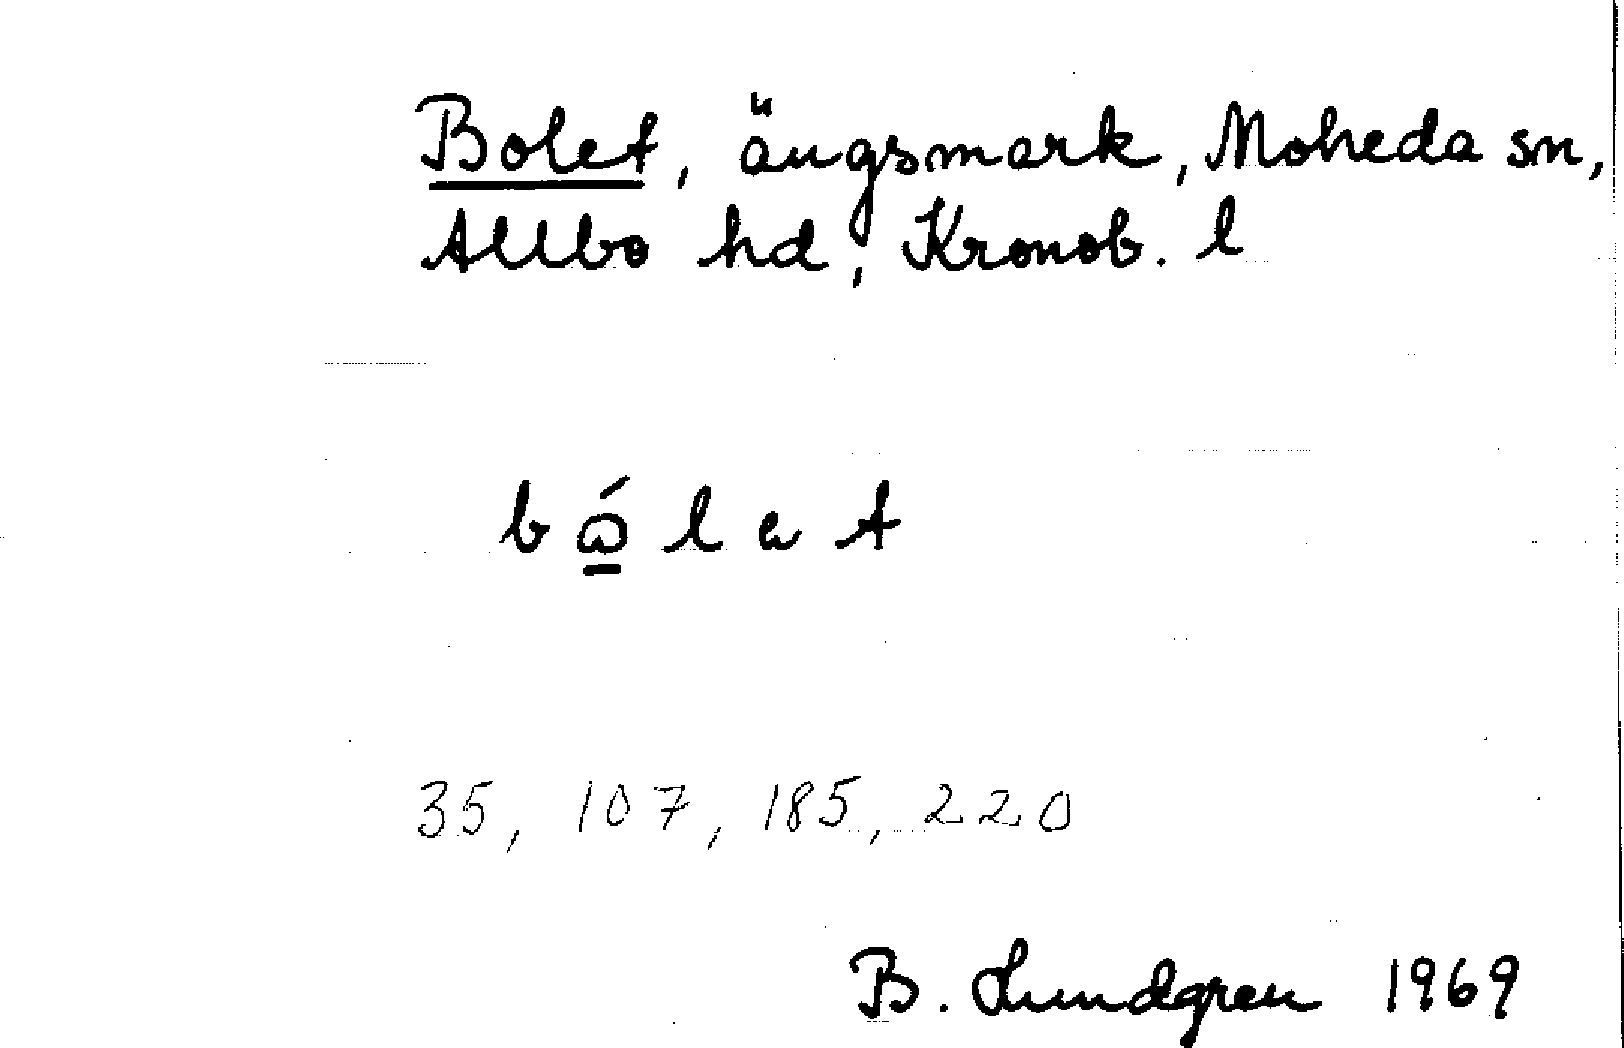 Bolet, ängsmark, Moheda sn,
Allbo hd, Kronob. l
35, 107, 185, 220
B. Lundgren 1969